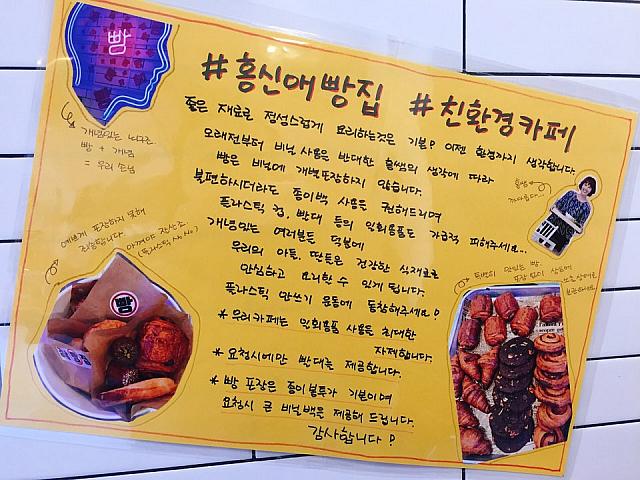 빵
#홍신애빵집 #친환경카페
좋은 재료로 정성스럽게 요리하는것은 기본! 이젠 환경까지 생각합니다.
오래전부터 비닐 사용을 반대한 홍쌤의 생각에 따라
빵은 비닐에 개별포장하지 않습니다.
불편하시더라도 종이백 사용을 권해드리며
플라스틱 컵, 빨대 등의 일회용품도 가급적 피해주세요...
개념있는 여러분들 덕분에
우리의 아들, 딸들은 건강한 식재료로
안심하고 요리할 수 있게 됩니다.
플라스틱 안쓰기 운동에 동참해주세요!
* 우리카페는 일회용품 사용을 최대한
자제합니다.
* 요청시에만 빨대를 제공합니다.
* 빵 포장은 종이봉투가 기본이며
요청시 큰 비닐백을 제공해 드립니다.
감사합니다!
개념있는 뇌구조.
빵 + 개념
= 우리 손님
예쁘게 포장하지 못해
죄송합니다.
아껴야 잖아요.
(플라스틱 No No)
홍쌤은
빵